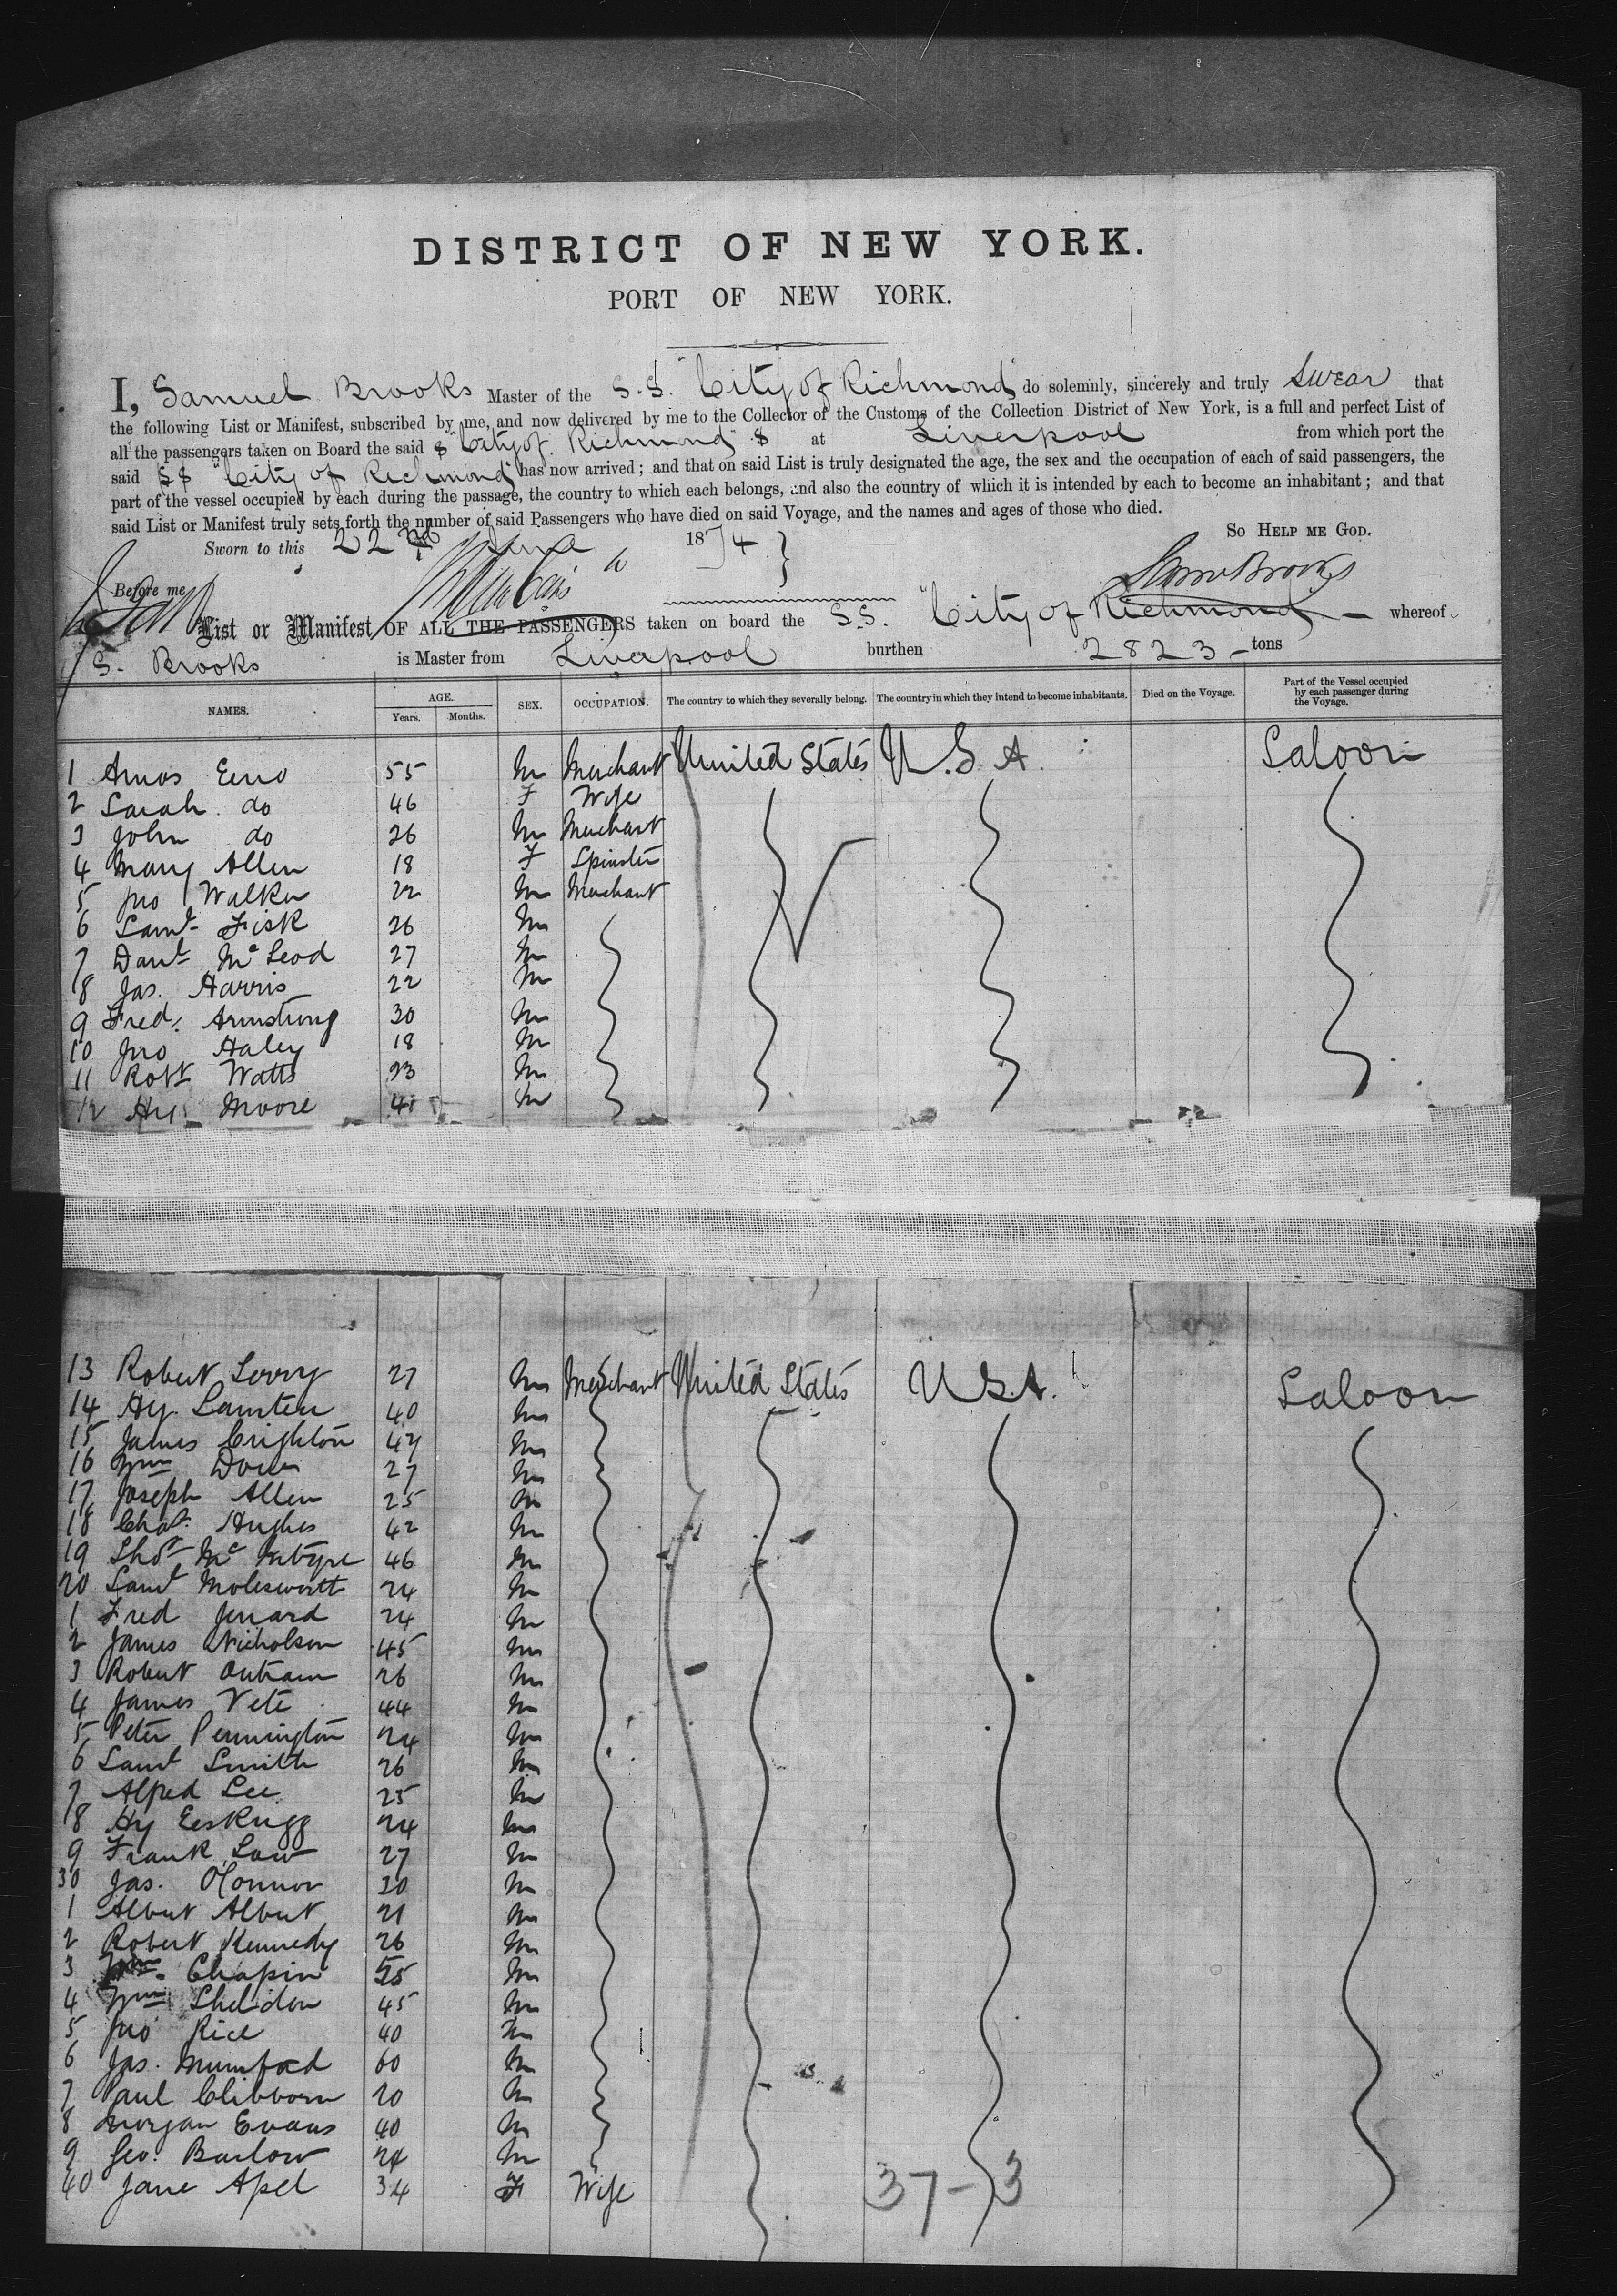 DISTRICT OF NEW YORK.
PORT OF NEW YORK.
I, Samuel Brooks Master of the S.S. "City of Richmond" do solemnly, sincerely and truly swear that
the following List or Manifest, subscribed by me, and now delivered by me to the Collector of the Customs of the Collection District of New York, is a full and perfect List of
all the passengers taken on Board the said "City of Richmond" at Liverpool from which port the
said SS "City of Richmond" has now arrived; and that on said List is truly designated the age, the sex and the occupation of each of said passengers, the
part of the vessel occupied by each during the passage, the country to which each belongs, and also the country of which it is intended by each to become an inhabitant; and that
said List or Manifest truly sets forth the number of said Passengers who have died on said Voyage, and the names and ages of those who died.
So HELP ME GOD.
Sworn to this 22nd June 1874
Saml Brooks
Before me
List or Manifest OF ALL THE PASSENGERS taken on board the S.S. "City of Richmond whereof
S. Brooks is Master from Liverpool burthen 2823 tons
NAMES. AGE. Years. Months. SEX. OCCUPATION. The country to which they severally belong. The country in which they intend to become inhabitants. Died on the Voyage. Part of the Vessel occupied by each passenger during the Voyage.
1 Amos Eno 55 M Merchant United States U.S.A. Saloon
2 Sarah do 46 F Wife
3 John do 26 M Merchant
4 Mary Allen 18 F Spinster
5 Jno Walker 22 M Merchant
6 Saml Fisk 26 M
7 Danl McLeod 27 M
8 Jas. Harris 22 M
9 Fred. Armstrong 30 M
10 Jno Haley 18 M
11 Robt Watts 23 M
12 Hy Moore 41 M
13 Robert Lorry 27 M Merchant United States U.S.A. Saloon
14 Hy. 40 M
15 James Crighton 47 M
16 Wm 27 M
17 Joseph Allen 25 M
18 Chas. Hughes 42 M
19 Thos McIntyre 46 M
20 Saml Molesworth 24 M
1 Fred 24 M
2 James Nicholson 45 M
3 Robert Outram 26 M
4 James Vete 44 M
5 Peter Pennington 24 M
6 Saml Smith 26 M
7 Alfred Lee 25 M
8 Hy Eeskrigg 24 M
9 Frank Law 27 M
30 Jas. O'Connor 30 M
1 Albert Albert 21 M
2 Robert Kennedy 26 M
3 Wm. Chapin 55 M
4 Wm Sheldon 45 M
5 Jno Rice 40 M
6 Jas. Mumford 60 M
7 Paul Clibborn 20 M
8 Morgan Evans 40 M
9 Geo. Barlow 24 M
40 Jane Apel 34 F Wife
37-3